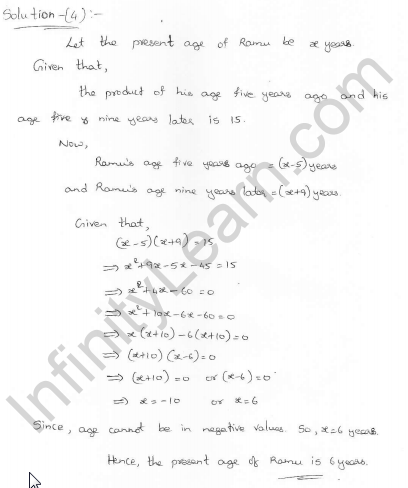 Solution-(4):-
Let the present age of Ramu be x years.
Given that,
the product of his age five years ago and his
age five & nine years later is 15.
Now,
Ramu's age five years ago = (x-5) years
and Ramu's age nine years later = (x+9) years.
Given that,
(x-5)(x+9) = 15
⇒ x²+9x-5x-45 = 15
⇒ x²+4x-60 = 0
⇒ x²+10x-6x-60 = 0
⇒ x(x+10)-6(x+10) = 0
⇒ (x+10)(x-6) = 0
⇒ (x+10) = 0 or (x-6) = 0
⇒ x = -10 or x = 6
Since, age cannot be in negative values. So, x=6 years.
Hence, the present age of Ramu is 6 years.
InfinityLearn.com